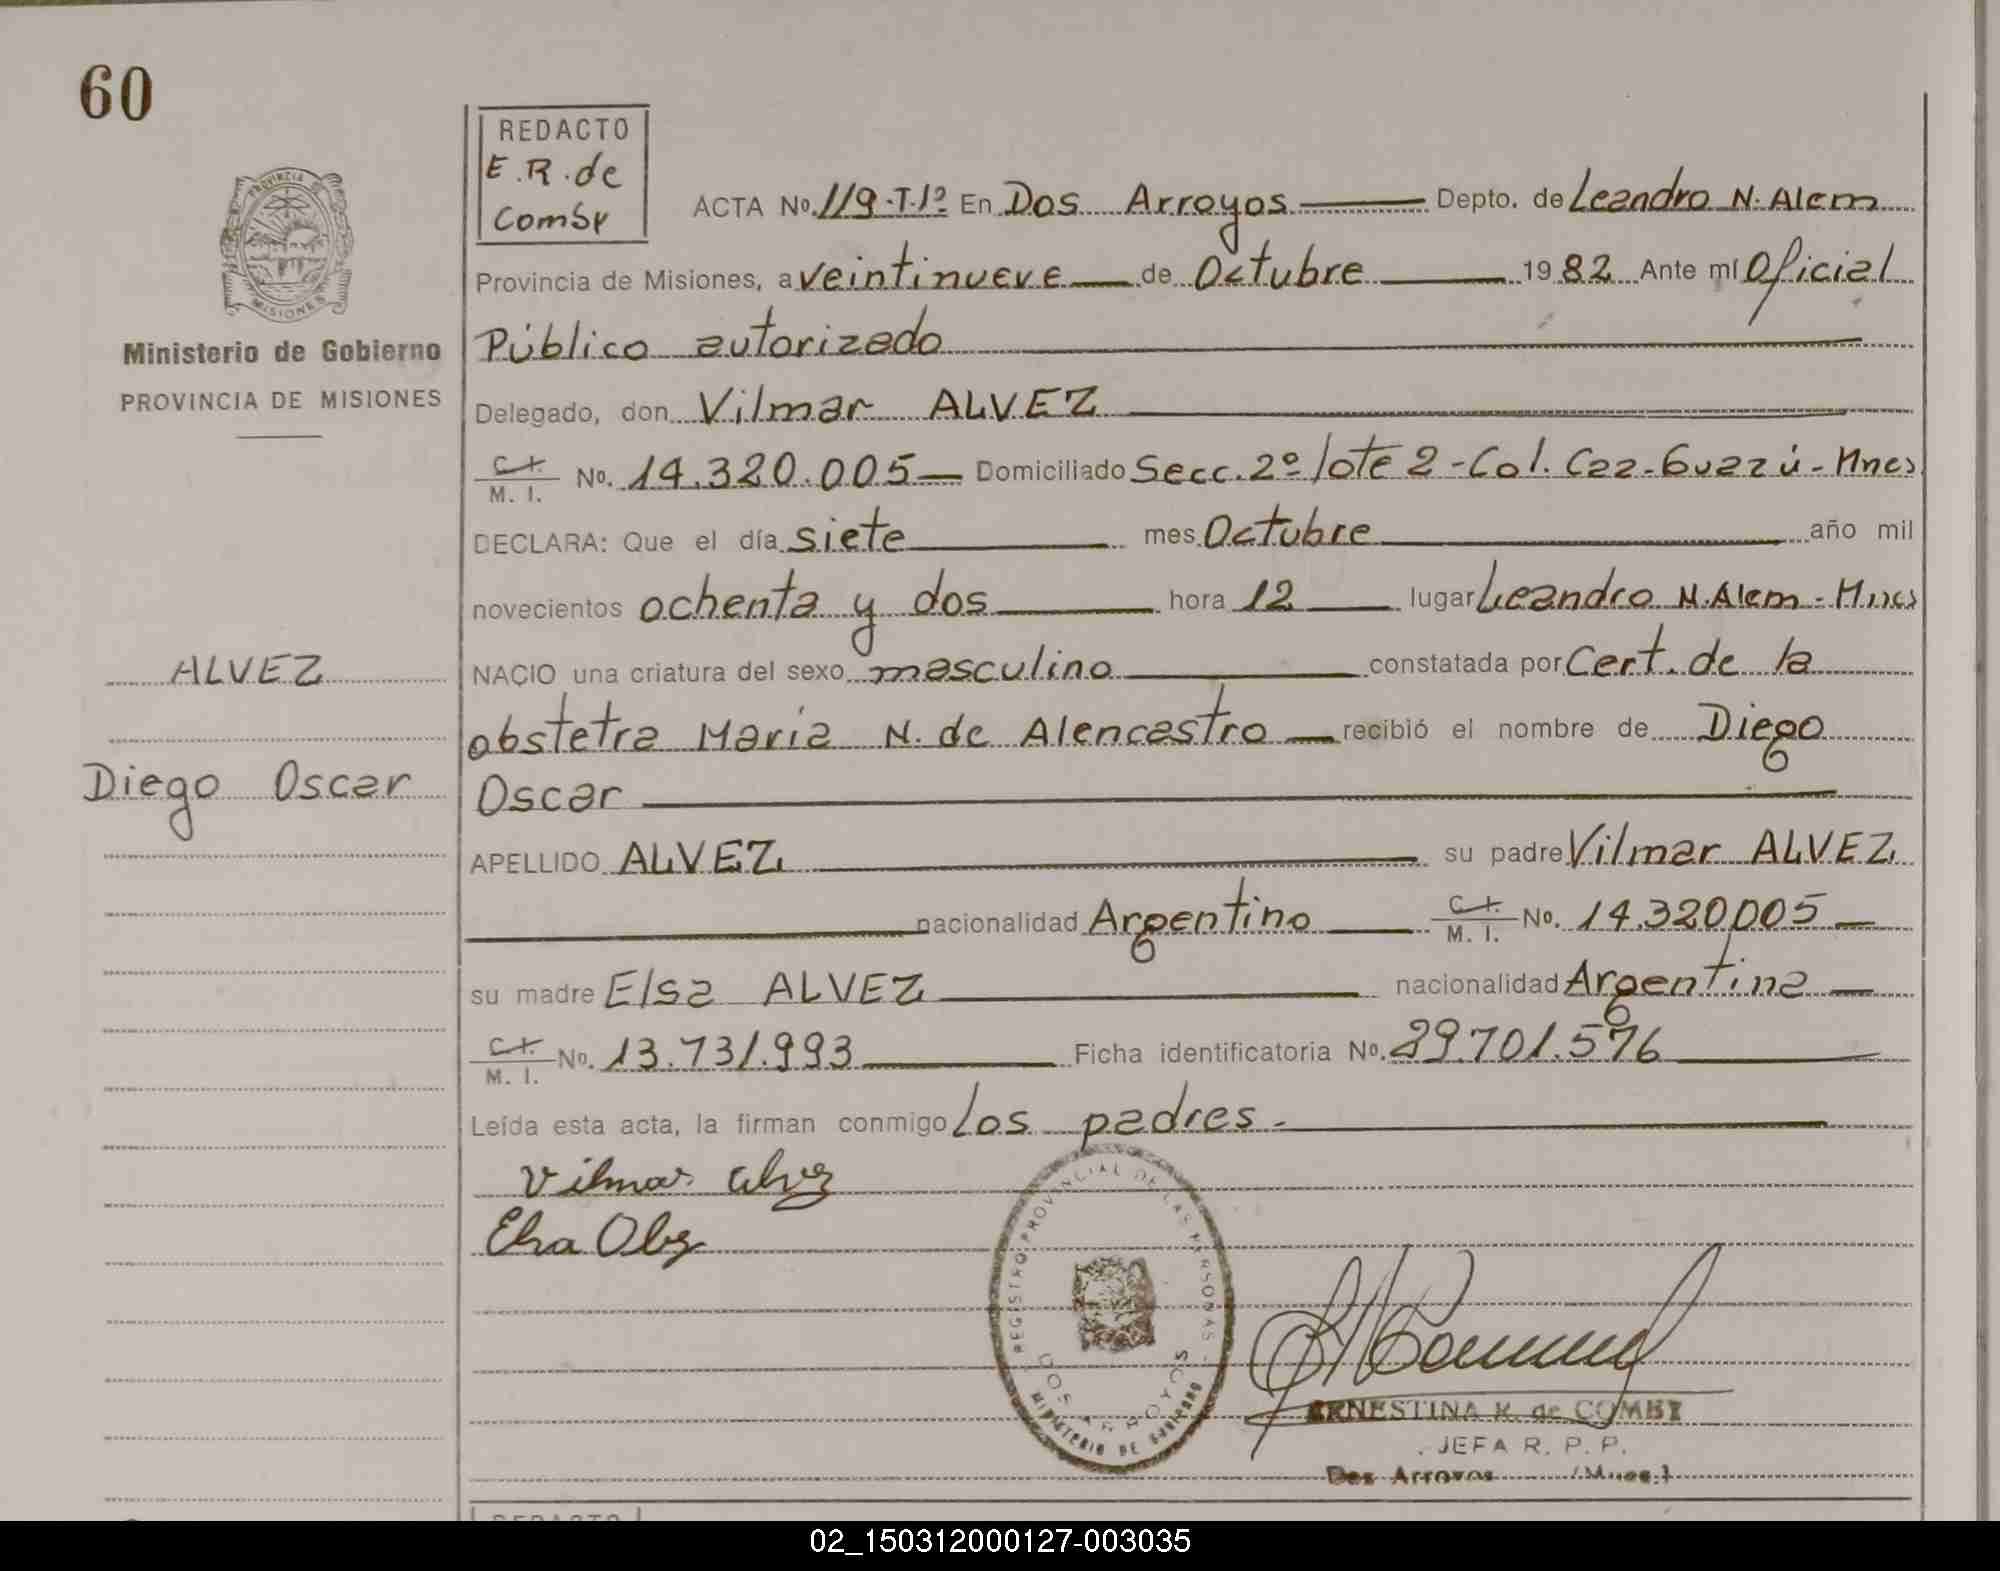 60
REDACTO
E.R. de
Comby
PROVINCIA DE
MISIONES
Ministerio de Gobierno
PROVINCIA DE MISIONES
ALVEZ
Diego Oscar
ACTA No. 119-T-1º En Dos Arroyos Depto. de Leandro N. Alem
Provincia de Misiones, a veintinueve de Octubre 1982 Ante mí Oficial
Público autorizado
Delegado, don Vilmar ALVEZ
C.I. M. I. No. 14.320.005 Domiciliado Secc. 2º lote 2 - Col. Caa-Guazú - Mnes
DECLARA: Que el día siete mes Octubre año mil
novecientos ochenta y dos hora 12 lugar Leandro N. Alem - Mnes
NACIO una criatura del sexo masculino constatada por Cert. de la
obstetra María N. de Alencastro recibió el nombre de Diego
Oscar
APELLIDO ALVEZ su padre Vilmar ALVEZ
nacionalidad Argentino C.I. M. I. No. 14.320.005
su madre Elsa ALVEZ nacionalidad Argentina
C.I. M. I. No. 13.731.993 Ficha identificatoria No. 29.701.576
Leída esta acta, la firman conmigo los padres.
Vilmar Alvez
Elsa
REGISTRO PROVINCIAL DE LAS PERSONAS
DOS ARROYOS
MINISTERIO DE GOBIERNO
ERNESTINA R. de COMBY
JEFA R. P. P.
Dos Arroyos (Mnes.)
REDACTO
02_150312000127-003035